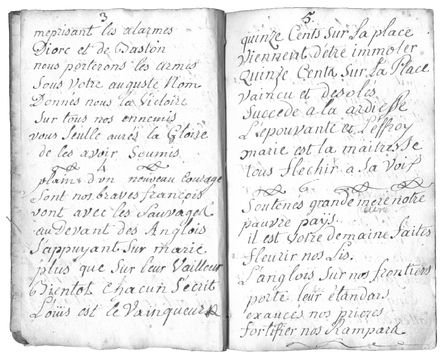 3
meprisant les alarmes
Diorc et de Baston
nous porterons les armes
Sous Votre auguste Nom
Donnés nous la Victoire
Sur tous nos ennemis
vous Seulle aurés la Gloire
de les avoir Soumis
4
plains d'un nouveau courage
Sont nos braves françois
vont avec les Sauvages
au Devant des Anglois
S'appuyant Sur marie
plus que Sur leur Vailleur
Bientot chacun S'écrit
Loüis est le Vainqueur
5.
quinze Cents Sur la place
Viennent d'etre immoler
Quinze Cents Sur La Place
Vaincu et desolés
Succede a la ardiesse
L'epouvante et L'effroy
marie est la maitresse
tous flechir a Sa Voix
6
Soutenés grande mere notre
pauvre pays.
il est Votre domaine faites
fleurir nos Lis.
L'anglois Sur nos frontiers
porte leur étandars
exaucés nos prieres
fortifier nos Rampars